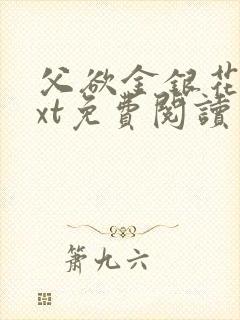 父欲金銀花
xt免費閱讀
簫九六